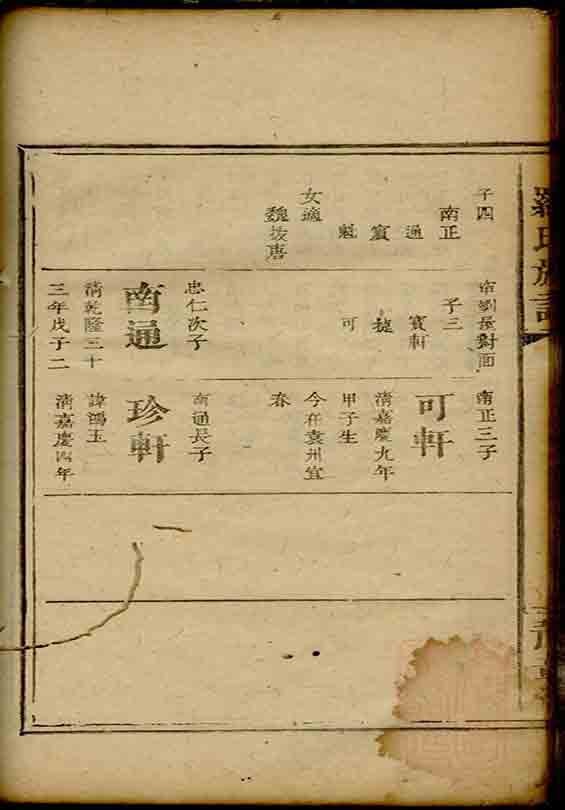 子四
南正
通
賓
魁
女適
魏坊唐
劉屋對面
子三
賓軒
捷
可
忠仁次子
南通
清乾隆三十
三年戊子二
南正三子
可軒
清嘉慶九年
甲子生
今在袁州宜
春
南通長子
珍軒
諱鴻玉
清嘉慶四年
羅氏族譜